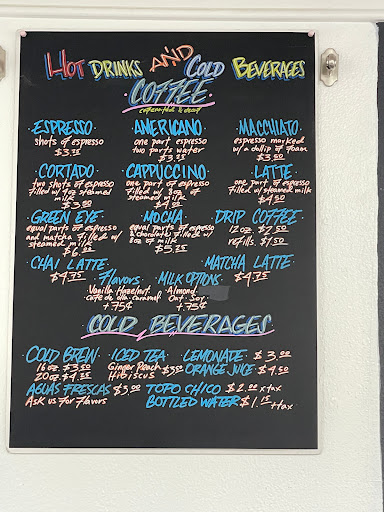 HOT DRINKS AND COLD BEVERAGES
COFFEE
caffeinated & decaf
ESPRESSO
shots of espresso
$3.25
AMERICANO
one part espresso
two parts water
$3.75
MACCHIATO
espresso marked
w/ a dollip of foam
$3.50
CORTADO
two shots of espresso
filled w/ 4oz steamed
milk
$3.90
CAPPUCCINO
one part of espresso
filled w/ 8oz of
steamed milk
$4.00
LATTE
one part of espresso
filled w/ steamed
milk
$4.50
GREEN EYE
equal parts of espresso
and matcha filled w/
steamed milk
$6.00
MOCHA
equal parts of espresso
& chocolate filled w/
8oz of milk
$5.25
DRIP COFFEE
12oz $2.50
refills $1.50
CHAI LATTE
$4.75
Flavors
Vanilla Hazelnut
cafe de olla caramel
+75¢
MILK OPTIONS
Almond
Oat Soy
+75¢
MATCHA LATTE
$4.75
COLD BEVERAGES
COLD BREW
16oz $3.50
20oz $4.25
ICED TEA
Ginger Peach
Hibiscus
$3.50
LEMONATE $3.00
ORANGE JUICE $4.50
AGUAS FRESCAS $3.00
Ask us for flavors
TOPO CHICO $2.00 +tax
BOTTLED WATER $1.15 +tax